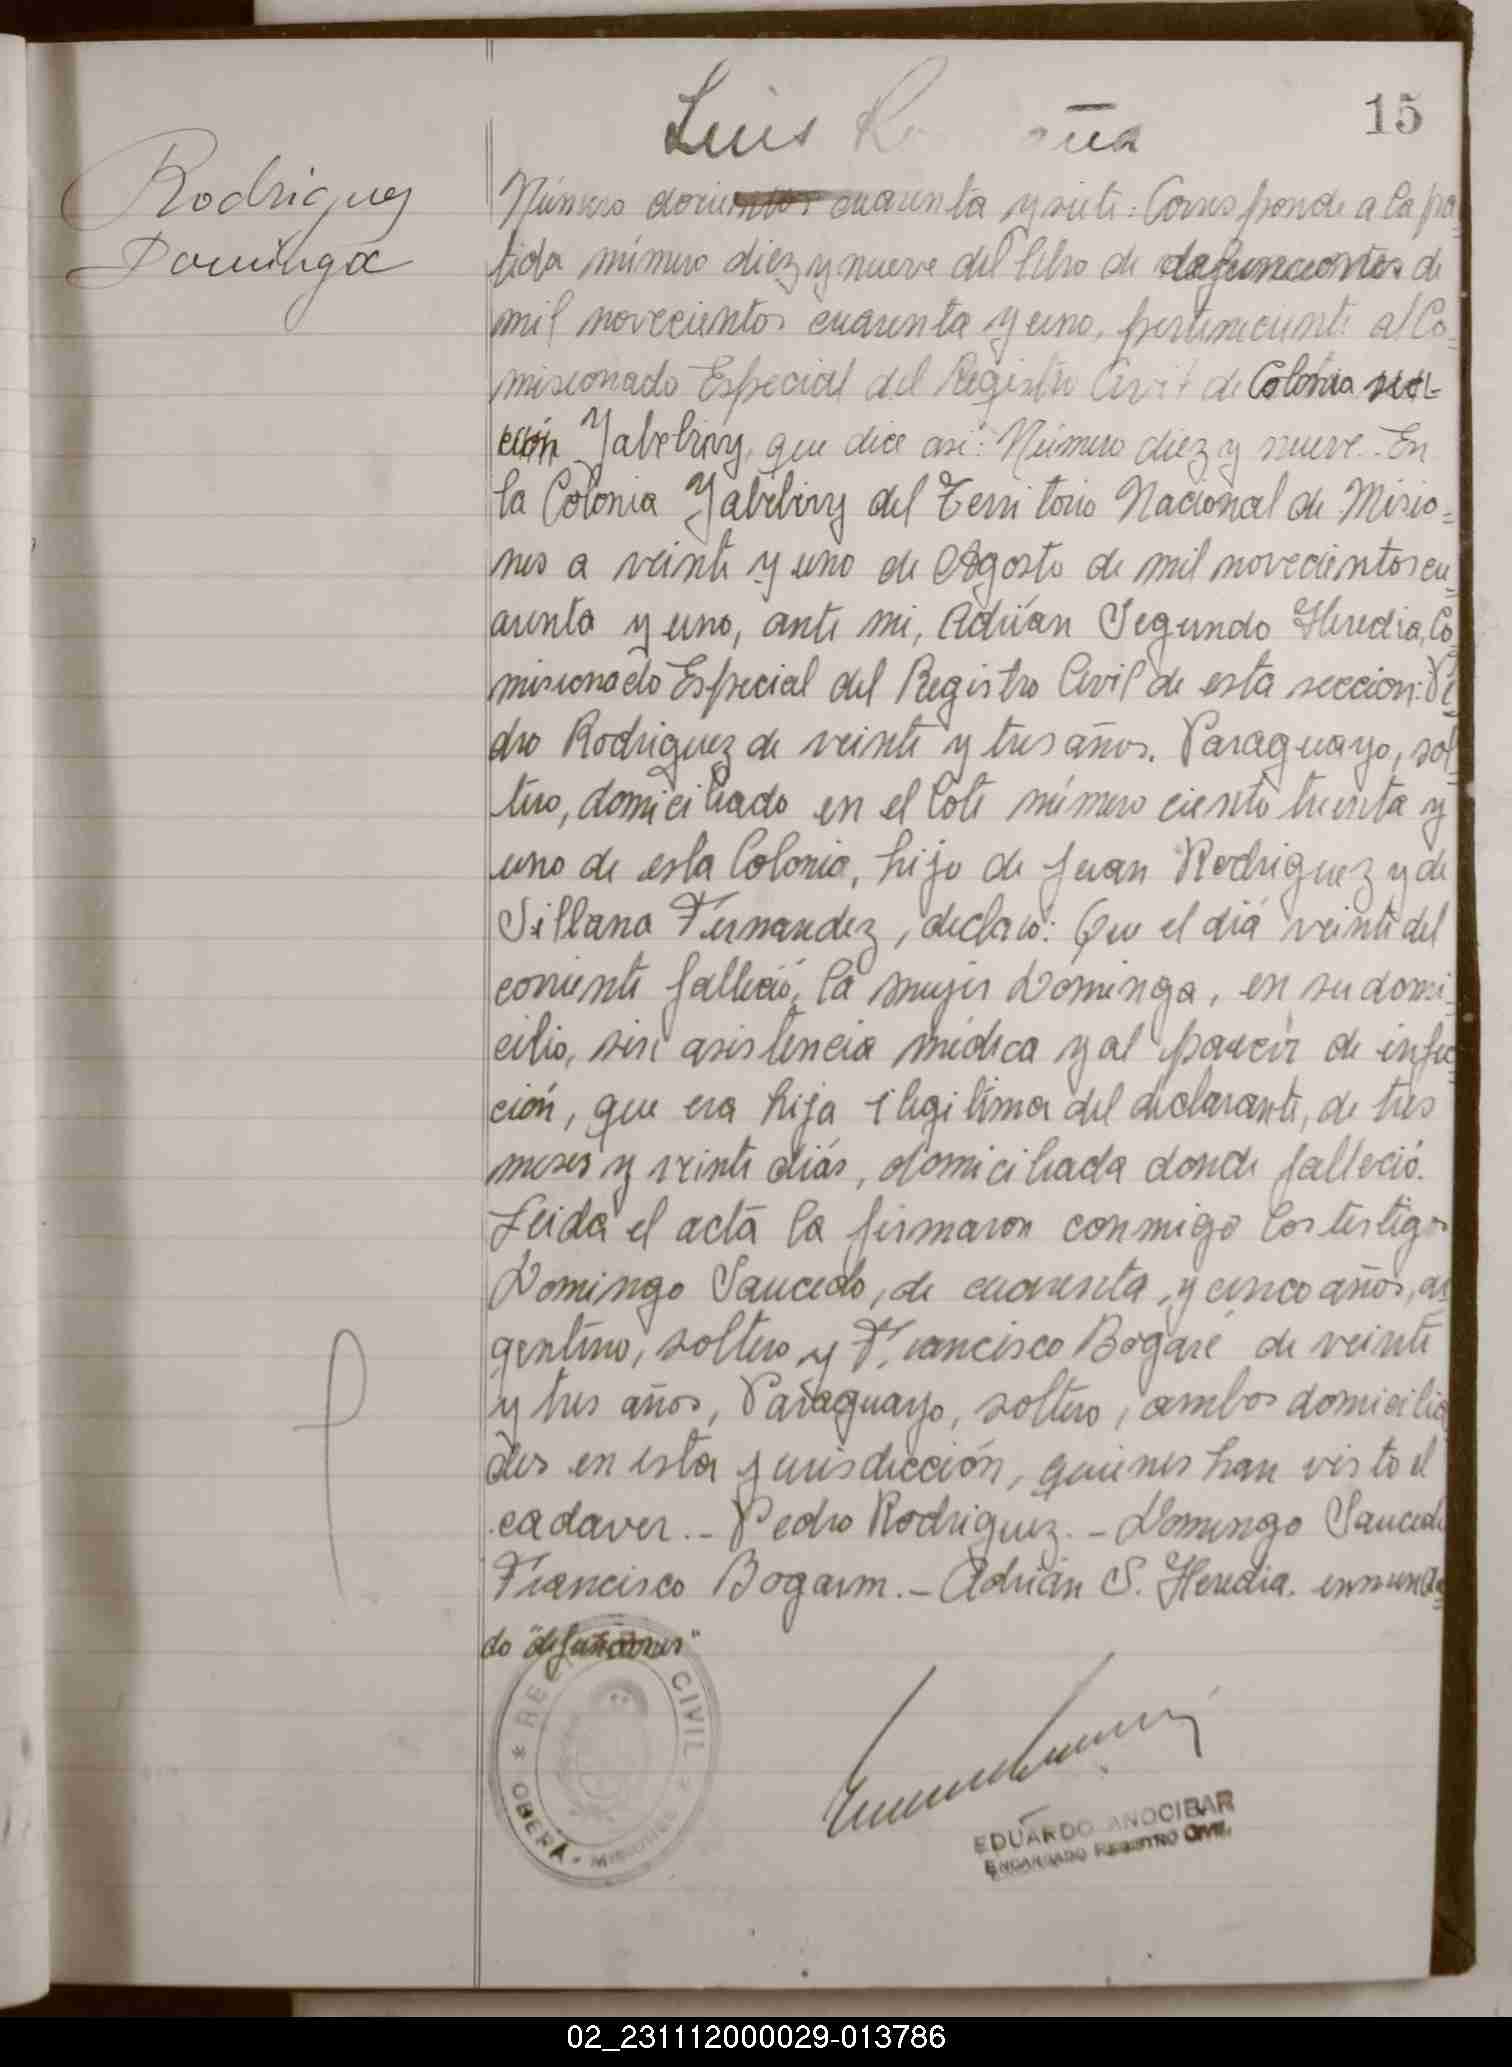 15
Luis
Rodriguez
Dominga
Número doscientos cuarenta y siete: Corresponde a la par-
tida número diez y nueve del libro de defunciones de
mil novecientos cuarenta y uno, perteneciente al Co-
misionado Especial del Registro Civil de Colonia sec-
ción Yabebiry, que dice asi: Número diez y nueve.- En
la Colonia Yabebiry del Territorio Nacional de Misio=
nes a veinte y uno de Agosto de mil novecientos cu=
arenta y uno, ante mi, Adrián Segundo Heredia, Co=
misionado Especial del Registro Civil de esta seccion: Pe=
dro Rodriguez de veinte y tres años. Paraguayo, sol=
tero, domiciliado en el lote número ciento treinta y
uno de esta Colonia, hijo de Juan Rodriguez y de
Sillana Fernandez, declaró: Que el diá veinte del
corriente falleció, la mujer Dominga, en su domi-
cilio, sin asistencia médica y al parecer de infec-
ción, que era hija ilegitima del declarante, de tres
meses y veinte diás, domiciliada donde falleció.
Leida el acta la firmaron conmigo los testigos
Domingo Saucedo, de cuarenta y cinco años, ar
gentino, soltero y Francisco Bogaré de veinte
y tres años, Paraguayo, soltero, ambos domicilia
dos en esta jurisdicción, quienes han visto el
cadaver.- Pedro Rodriguez.- Domingo Saucedo
Francisco Bogarm.- Adrián S. Heredia. enmenda=
do "defunciones"
REGISTRO CIVIL
* OBERÁ - MISIONES *
EDUARDO ANOCIBAR
ENCARGADO REGISTRO CIVIL
02_231112000029-013786